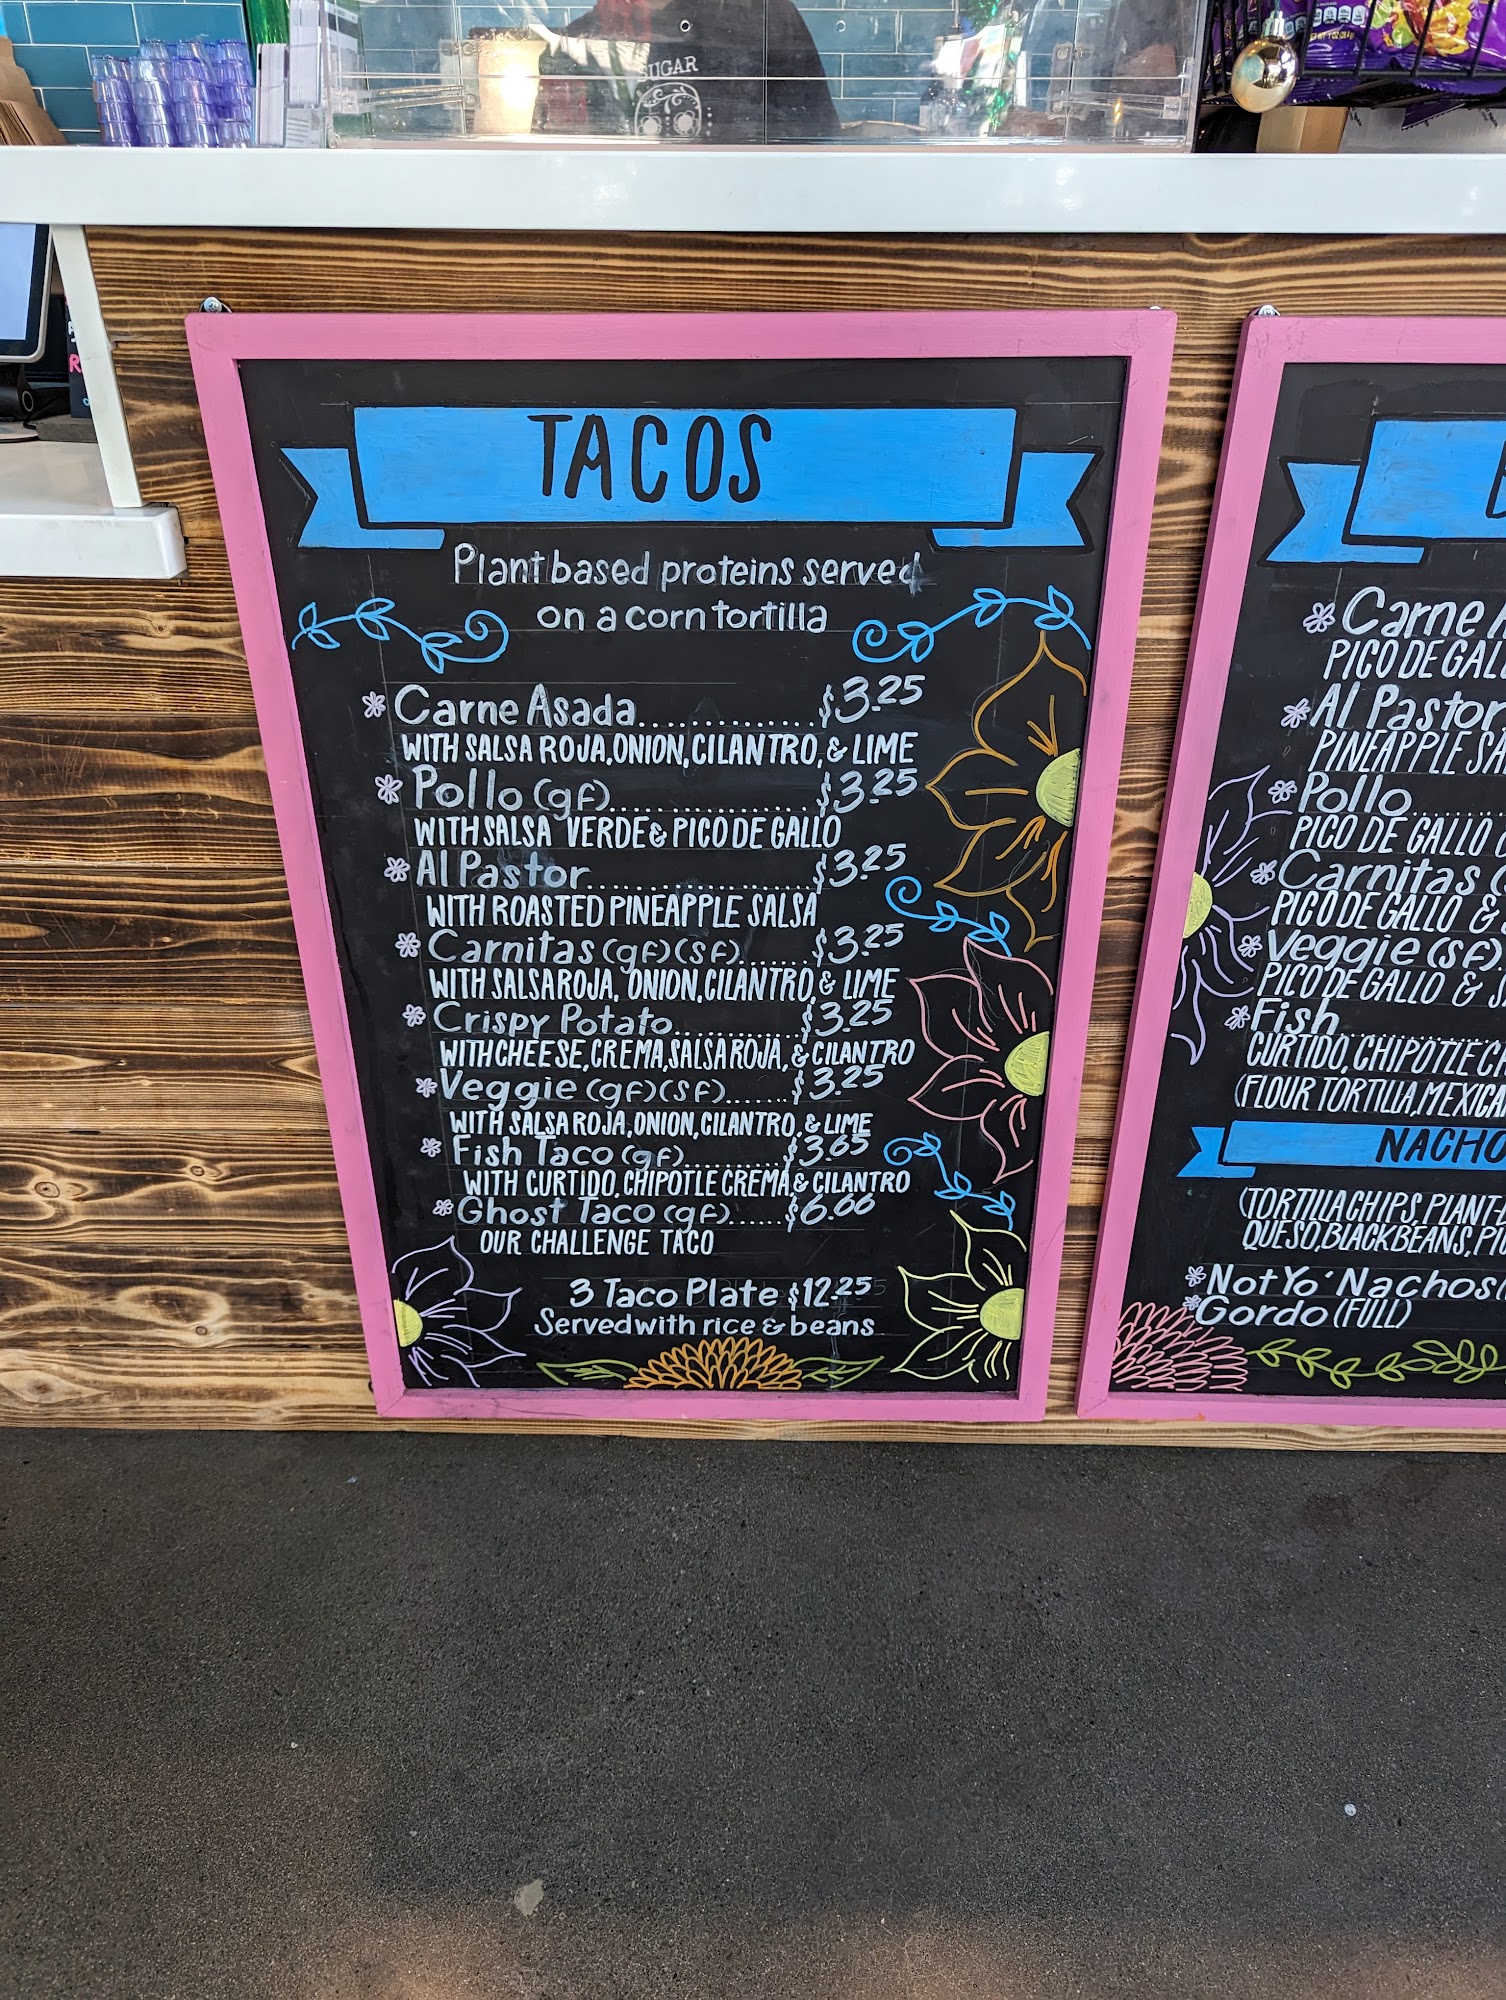 SUGAR
NET WT 1 OZ (28.4g)
TACOS
Plant based proteins served
on a corn tortilla
Carne Asada.................$3.25
WITH SALSA ROJA, ONION, CILANTRO, & LIME
Pollo (gf)...................$3.25
WITH SALSA VERDE & PICO DE GALLO
Al Pastor.....................$3.25
WITH ROASTED PINEAPPLE SALSA
Carnitas (gf)(sf).......$3.25
WITH SALSA ROJA, ONION, CILANTRO, & LIME
Crispy Potato............$3.25
WITH CHEESE, CREMA, SALSA ROJA, & CILANTRO
Veggie (gf)(sf).......$3.25
WITH SALSA ROJA, ONION, CILANTRO, & LIME
Fish Taco (gf)...........$3.65
WITH CURTIDO, CHIPOTLE CREMA & CILANTRO
Ghost Taco (gf)......$6.66
OUR CHALLENGE TACO
3 Taco Plate $12.25
Served with rice & beans
Carne
PICO DE GAL
Al Pastor
PINEAPPLE SA
Pollo
PICO DE GALLO
Carnitas
PICO DE GALLO &
Veggie (sf)
PICO DE GALLO &
Fish
CURTIDO, CHIPOTLE C
(FLOUR TORTILLA, MEXICA
NACHO
(TORTILLA CHIPS, PLANT-
QUESO, BLACK BEANS, PI
Not Yo' Nachos
Gordo (FULL)